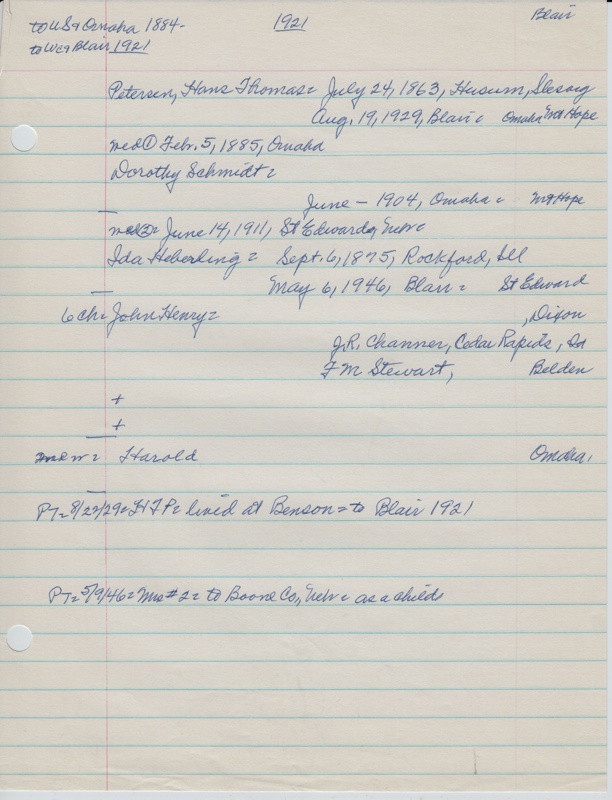 to US & Omaha 1884- 1921 Blair
to WC & Blair 1921
Petersen, Hans Thomas = July 24, 1863, Husum, Slesvig
Aug. 19, 1929, Blair = Omaha Mt Hope
med ① Feb. 5, 1885, Omaha
Dorothy Schmidt =
June - 1904, Omaha = Mt Hope
med ② = June 14, 1911, St Edwards, Neb =
Ida Heberling = Sept. 6, 1875, Rockford, Ill
May 6, 1946, Blair = St Edward
6 ch = John Henry = , Dixon
J.R. Channer, Cedar Rapids, Ia
F M Stewart, Belden
+
+
Harold Omaha,
PT = 8/22/29 = HTP = lived at Benson = to Blair 1921
PT = 5/9/46 = Mrs #2 = to Boone Co, Neb = as a child